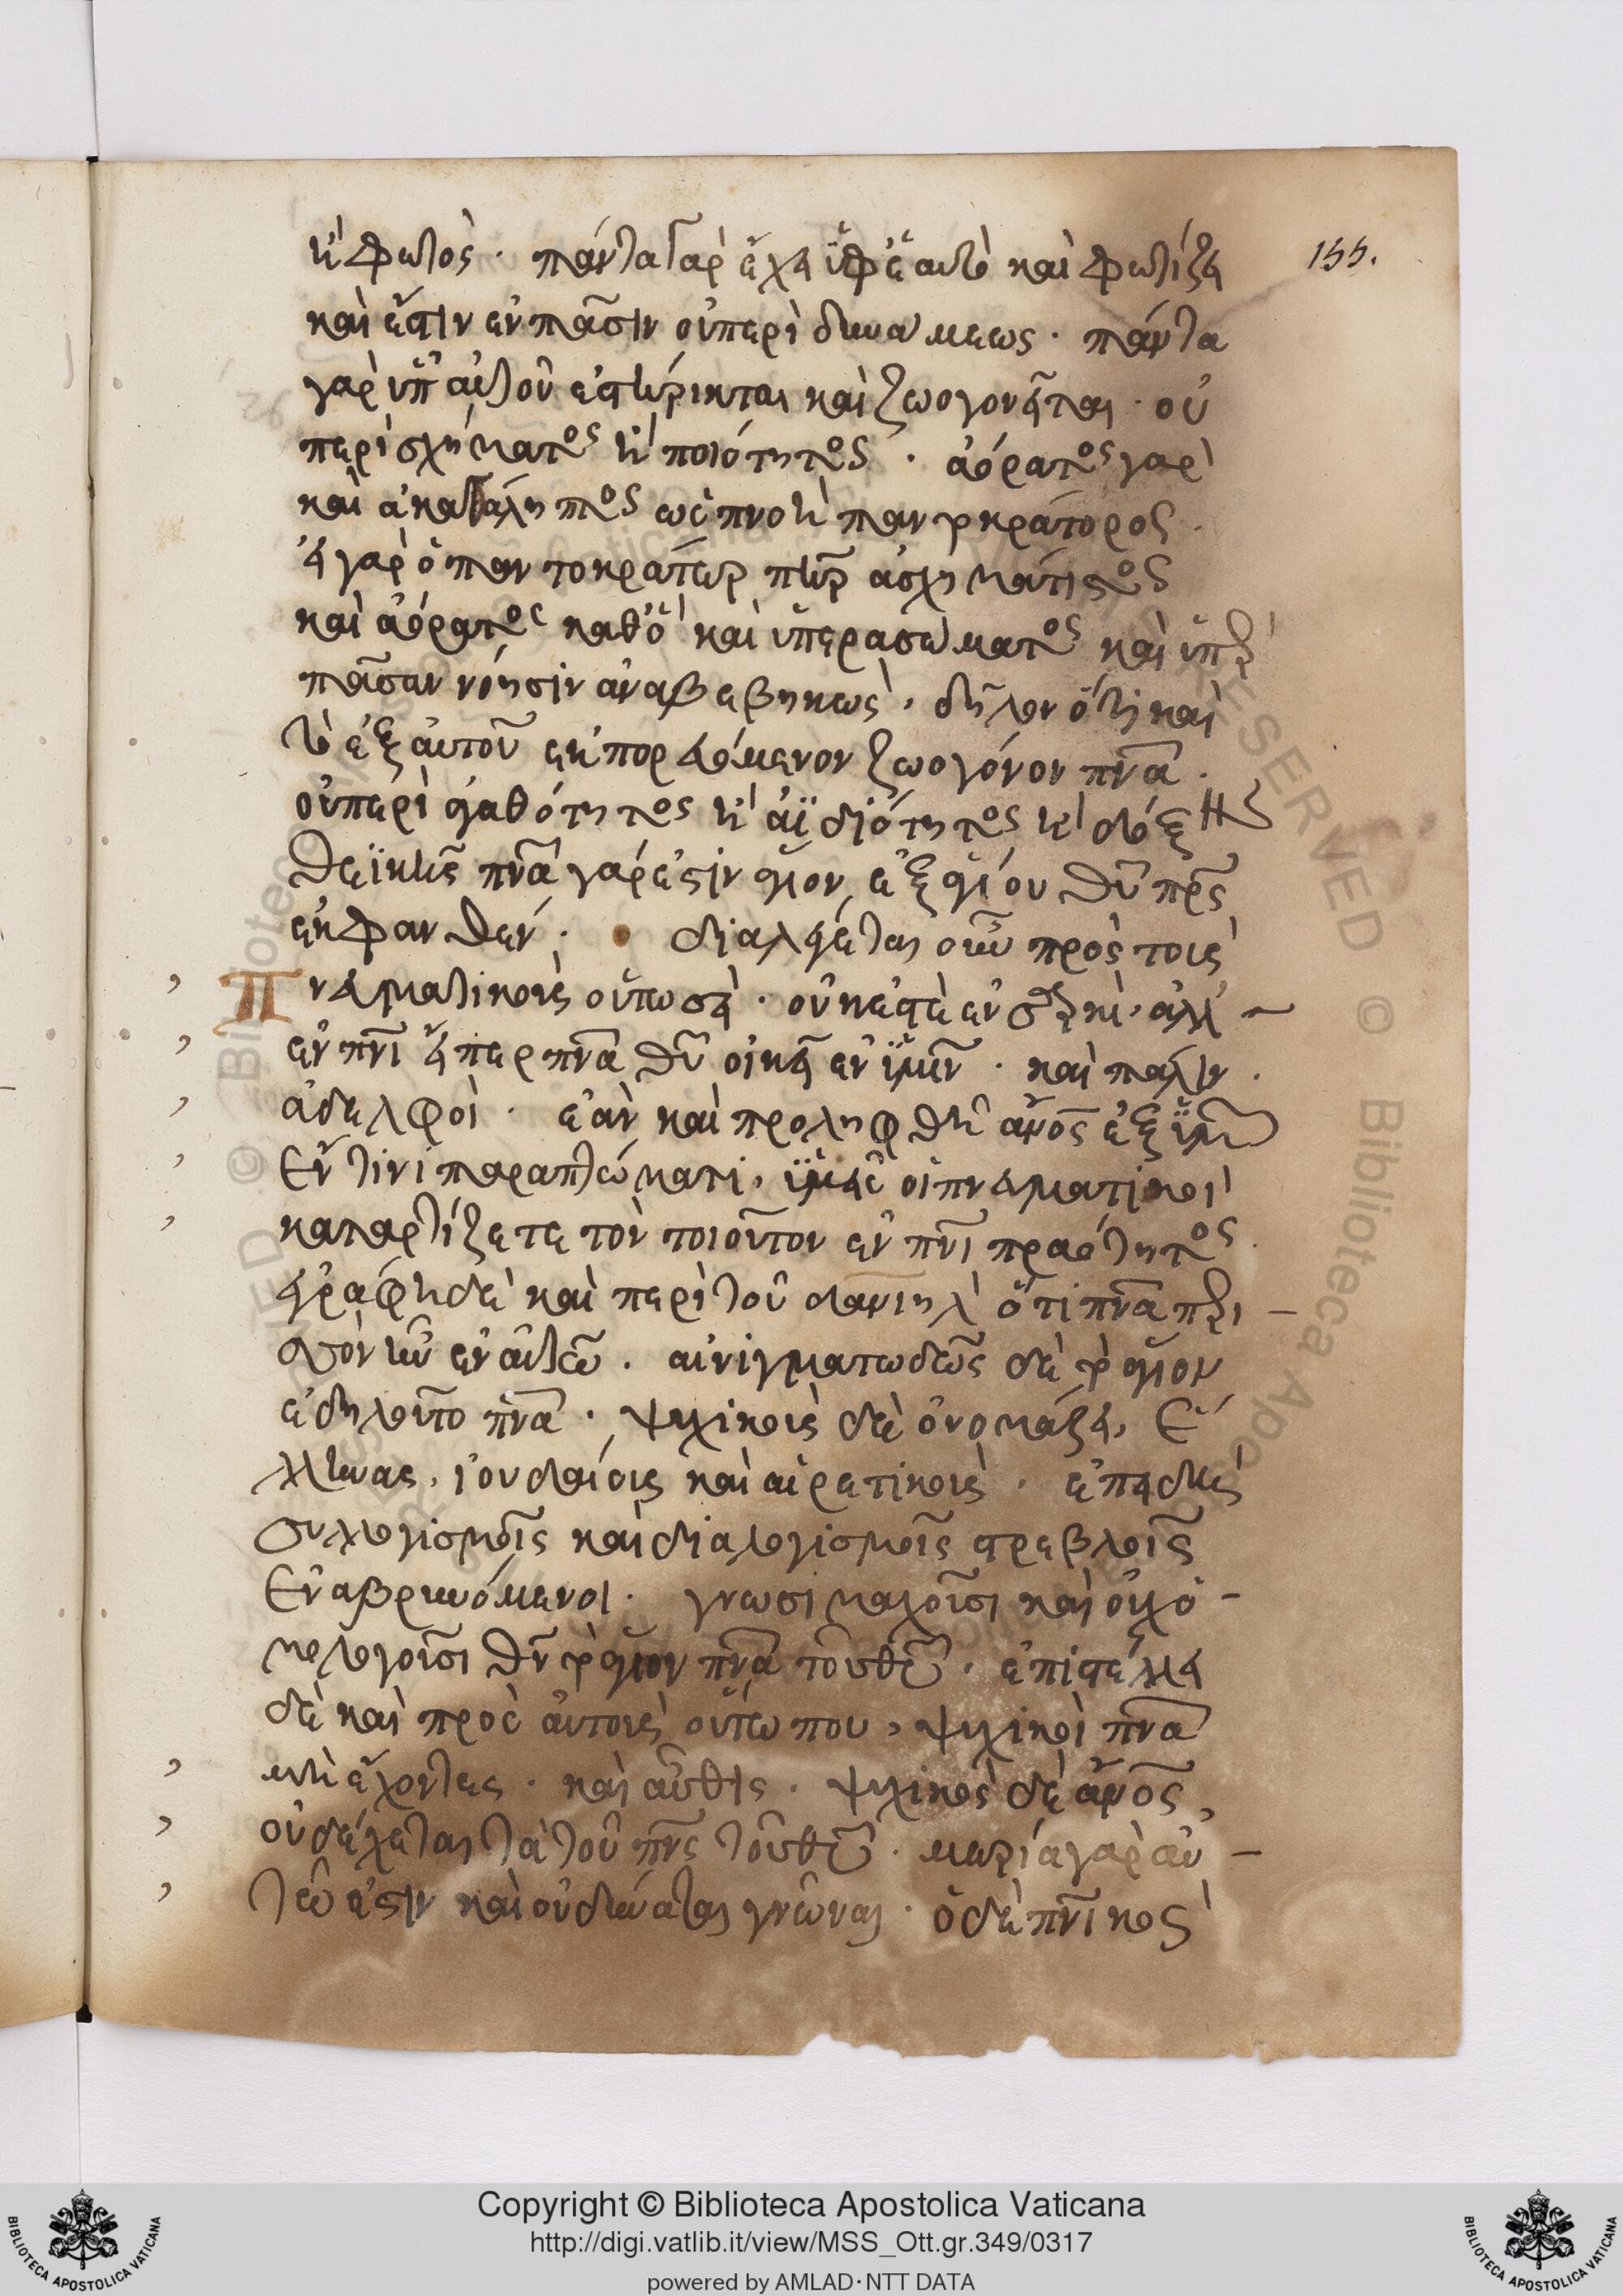 155.
κ(αὶ) φωτός · πάντα γὰρ ἔχει ὑφ' ἑαυτὸ καὶ φωτίζει
καὶ ἔστιν ἐν πᾶσιν οὐ περὶ δυνάμεως · πάντα
γὰρ ὑπ' αὐτοῦ ἐστήρικται καὶ ζωογονεῖται · οὐ
περὶ σχήματος κ(αὶ) ποιότητος · ἀόρατος γὰρ
καὶ ἀκατάληπτος ὡς πνοὴ παντοκράτορος
εἰ γὰρ ὁ παντοκράτωρ πῆρ ἀσχημάτιστος
καὶ ἀόρατος καθὸ καὶ ὑπερασώματος καὶ ὑπὲρ
πᾶσαν νόησιν ἀναβεβηκὼς, δῆλον ὅτι καὶ
τὸ ἐξ αὐτοῦ ἐκπορευόμενον ζωογόνον πνᾶ ·
οὐ περὶ ἀγαθότητος κ(αὶ) ἀϊδιότητος κ(αὶ) δόξης
θεϊκῆς πνᾶ γάρ ἐστιν ἅγιον, ἐξ ἁγίου θῦ πρς
ἐκφανθέν · διαλέγεται οὖν πρὸς τοὺς
πνευματικοὺς οὕτωσεὶ · οὐκ ἐστὲ ἐν σαρκὶ, ἀλλ'
ἐν πνι εἴπερ πνᾶ θῦ οἰκεῖ ἐν ὑμῖν · καὶ πάλιν ·
ἀδελφοὶ · ἐὰν καὶ προληφθῆ ἄνος ἐξ ὑμῶν
ἔν τινι παραπτώματι, ὑμεῖς οἱ πνευματικοὶ
καταρτίζετε τὸν τοιοῦτον ἐν πνι πραότητος
ἐγράφη δὲ καὶ περὶ τοῦ δανιηλ ὅτι πνᾶ περισ
σὸν ἦν ἐν αὐτῶ · αἰνιγματωδῶς δὲ τὸ ἅγιον
ἐδηλοῦτο πνᾶ · ψυχικοὺς δὲ ὀνομάζει, ἕλ
ληνας, ἰουδαίους καὶ αἱρετικοὺς · ἐπειδὴ
συλλογισμοῖς καὶ διαλογισμοῖς στρεβλοῖς
ἐναβρυνόμενοι · γνωσιμαχοῦσι καὶ οὐχ ὁ
μολογοῦσι θν τὸ ἅγιον πνᾶ τοῦ θεοῦ · ἐπιστέλλει
δὲ καὶ πρὸς αὐτοὺς οὕτω που, ψυχικοὶ πνᾶ
μὴ ἔχοντες · καὶ αὖθις · ψυχικὸς δὲ ἄνος
οὐ δέχεται τὰ τοῦ πνς τοῦ θεοῦ · μωρία γὰρ αὐ
τῶ ἐστιν καὶ οὐ δύναται γνῶναι · ὁ δὲ πνικὸς
Copyright © Biblioteca Apostolica Vaticana
http://digi.vatlib.it/view/MSS_Ott.gr.349/0317
powered by AMLAD·NTT DATA
BIBLIOTECA APOSTOLICA VATICANA
BIBLIOTECA APOSTOLICA VATICANA